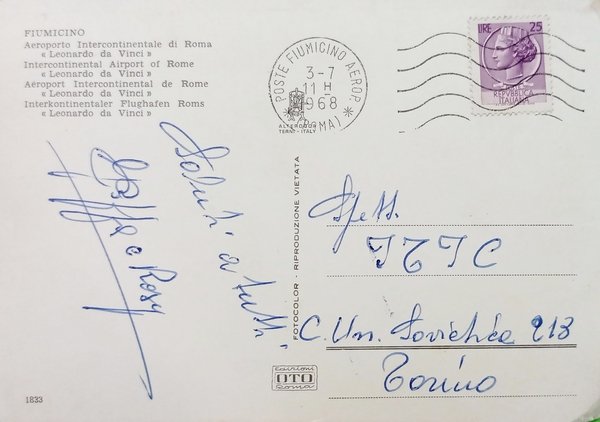 FIUMICINO
Aeroporto Intercontinentale di Roma
« Leonardo da Vinci »
Intercontinental Airport of Rome
« Leonardo da Vinci »
Aéroport Intercontinental de Rome
« Leonardo da Vinci »
Interkontinentaler Flughafen Roms
« Leonardo da Vinci »
POSTE FIUMICINO AEROP.
3-7
11 H
1968
(ROMA)
ALTEROCCA
TERNI-ITALY
LIRE 25
REPVBBLICA
ITALIANA
Saluti a tutti
e Rosy
FOTOCOLOR - RIPRODUZIONE VIETATA
Spett.
ITIC
C. Un. Sovietica 213
Torino
Edizioni
OTO
Roma
1833